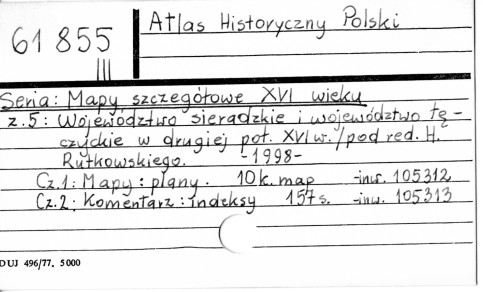 Atlas Historyczny Polski
61 855
III
Seria: Mapy szczegółowe XVI wieku
z.5: Województwo sieradzkie i województwo łę-
czyckie w drugiej poł. XVI w. / pod red. H.
Rutkowskiego. -1998-
Cz.1: Mapy: plany. 10 k. map -inw. 105312
Cz.2: Komentarz: indeksy 157 s. -inw. 105313
DUJ 496/77. 5000